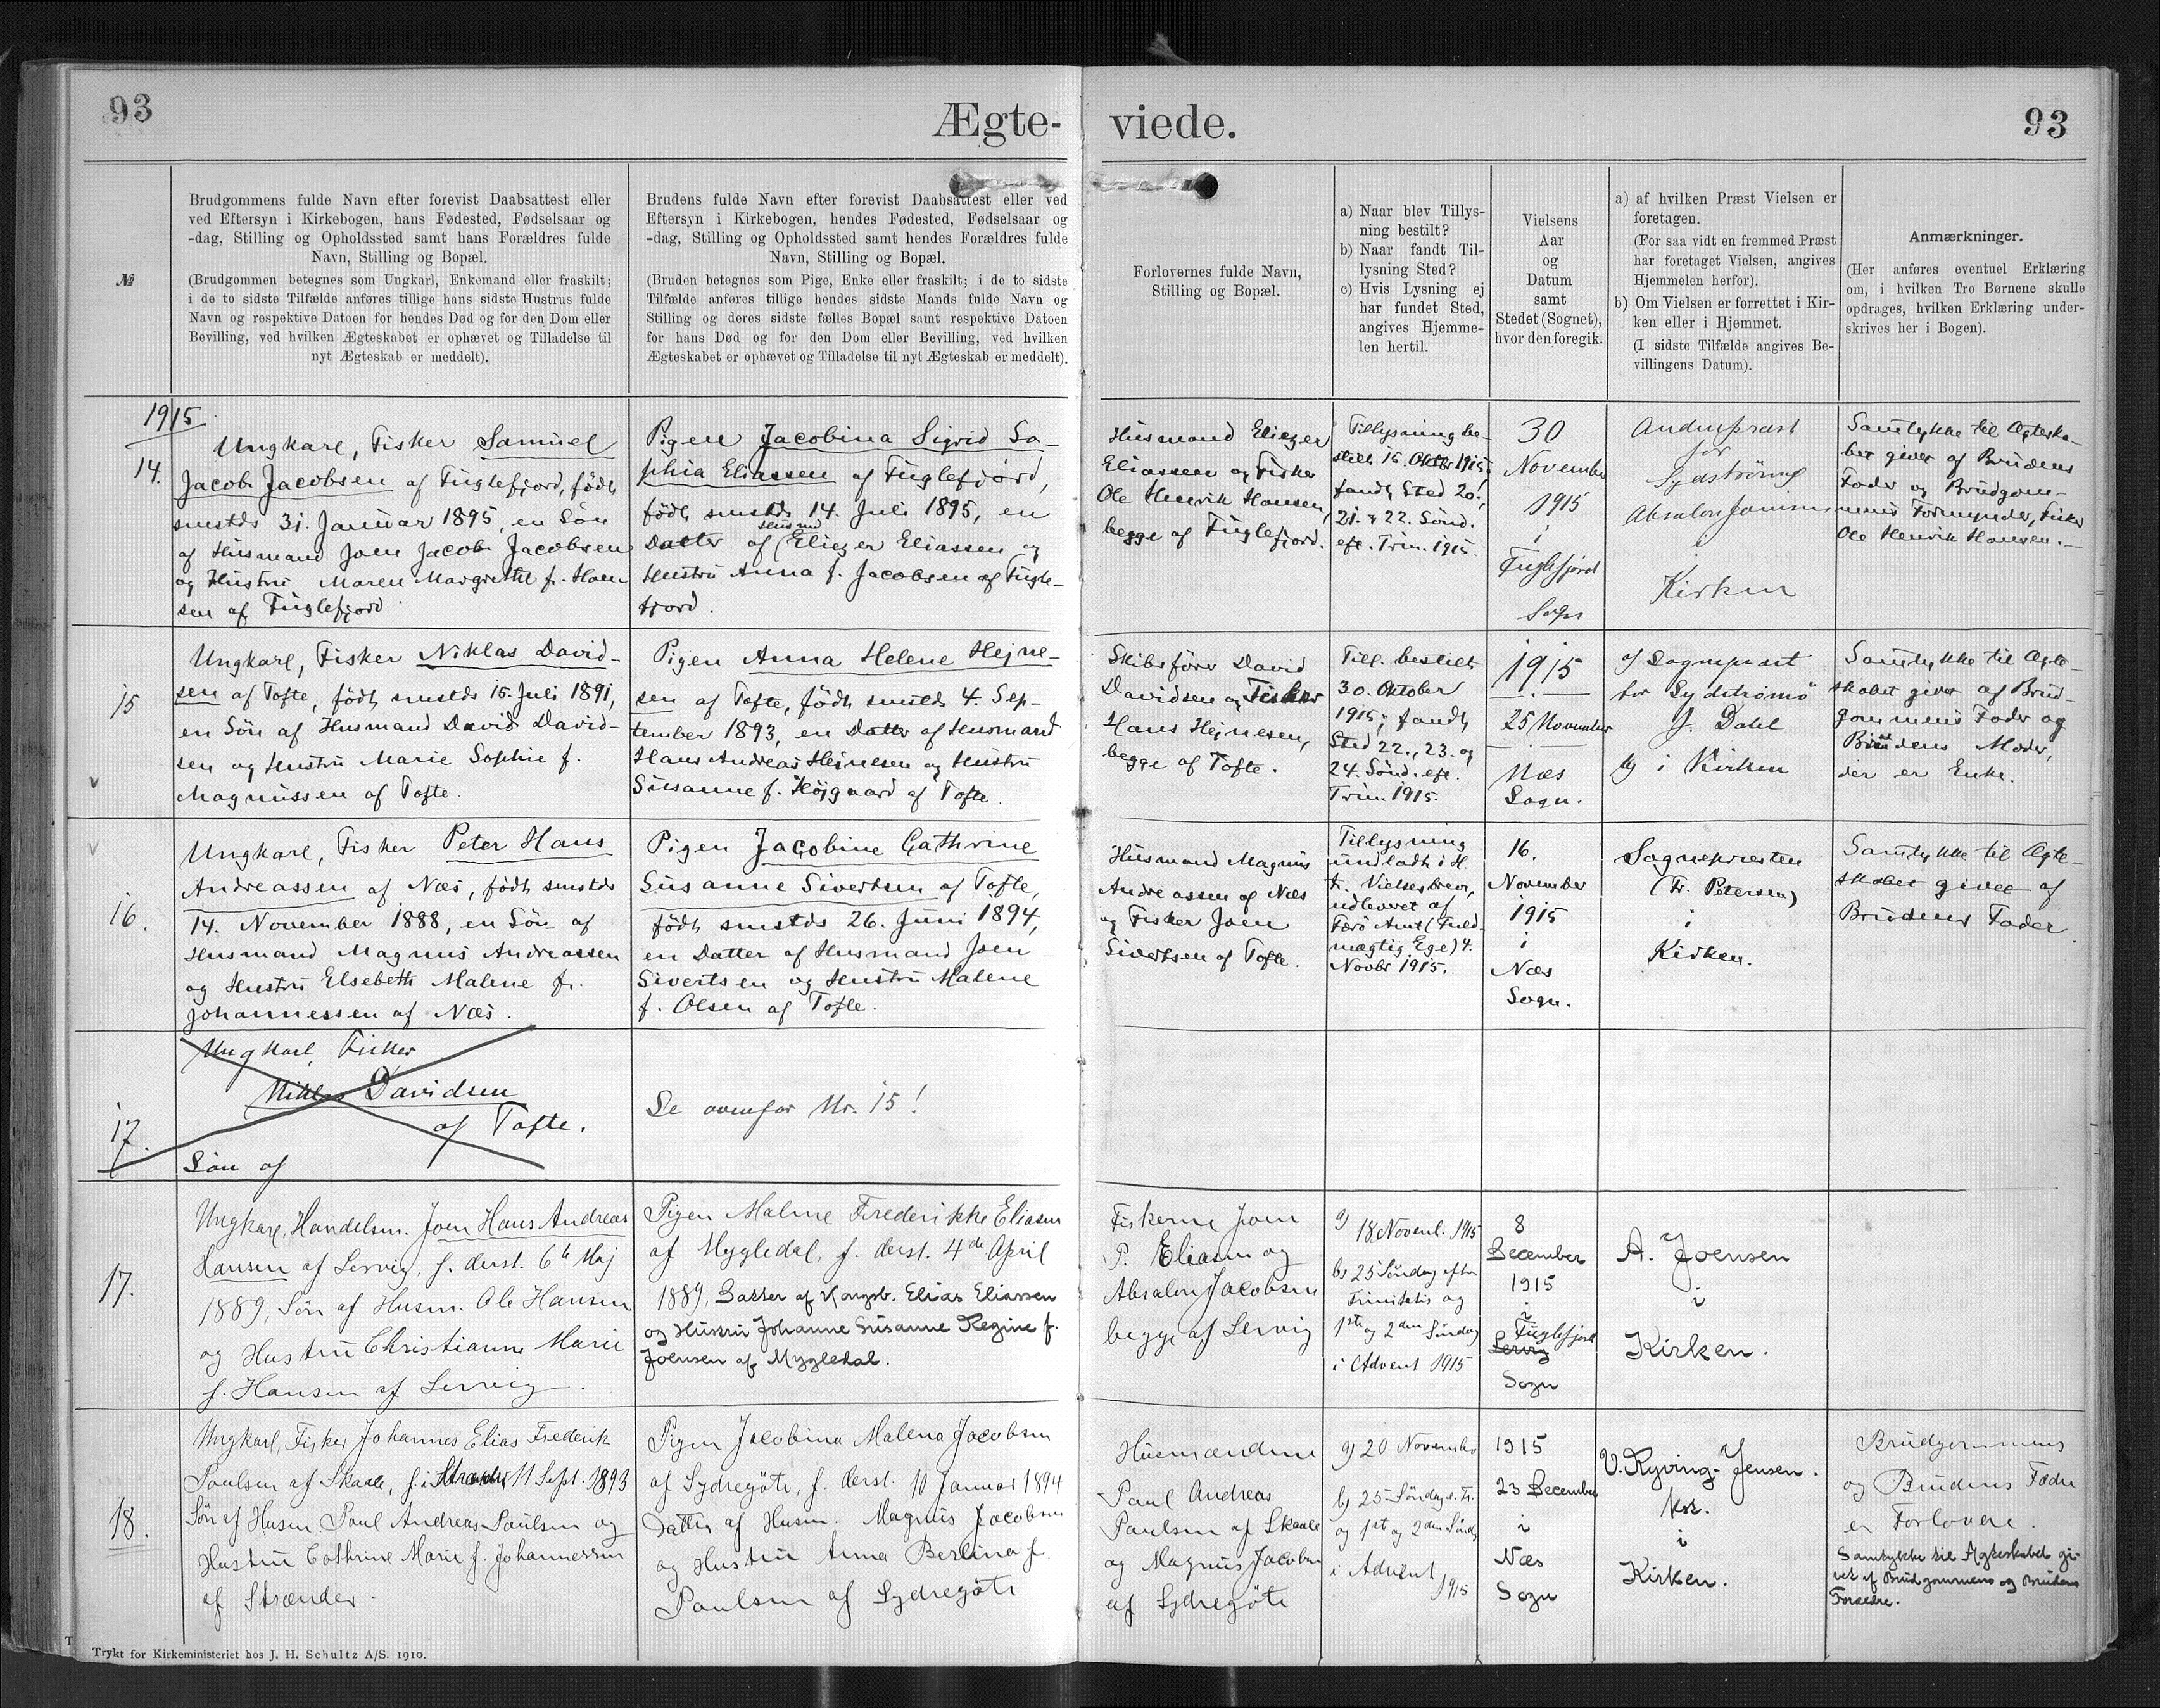 93
Ægte-
viede.
93
№
Brudgommens fulde Navn efter forevist Daabsattest eller
ved Eftersyn i Kirkebogen, hans Fødested, Fødselsaar og
-dag, Stilling og Opholdssted samt hans Forældres fulde
Navn, Stilling og Bopæl.
(Brudgommen betegnes som Ungkarl, Enkemand eller fraskilt;
i de to sidste Tilfælde anføres tillige hans sidste Hustrus fulde
Navn og respektive Datoen for hendes Død og for den Dom eller
Bevilling, ved hvilken Ægteskabet er ophævet og Tilladelse til
nyt Ægteskab er meddelt).
Brudens fulde Navn efter forevist Daabsattest eller ved
Eftersyn i Kirkebogen, hendes Fødested, Fødselsaar og
-dag, Stilling og Opholdssted samt hendes Forældres fulde
Navn, Stilling og Bopæl.
(Bruden betegnes som Pige, Enke eller fraskilt; i de to sidste
Tilfælde anføres tillige hendes sidste Mands fulde Navn og
Stilling og deres sidste fælles Bopæl samt respektive Datoen
for hans Død og for den Dom eller Bevilling, ved hvilken
Ægteskabet er ophævet og Tilladelse til nyt Ægteskab er meddelt).
Forlovernes fulde Navn,
Stilling og Bopæl.
a) Naar blev Tillys-
ning bestilt?
b) Naar fandt Til-
lysning Sted?
c) Hvis Lysning ej
har fundet Sted,
angives Hjemme-
len hertil.
Vielsens
Aar
og
Datum
samt
Stedet (Sognet),
hvor den foregik.
a) af hvilken Præst Vielsen er
foretagen.
(For saa vidt en fremmed Præst
har foretaget Vielsen, angives
Hjemmelen herfor).
b) Om Vielsen er forrettet i Kir-
ken eller i Hjemmet.
(I sidste Tilfælde angives Be-
villingens Datum).
Anmærkninger.
(Her anføres eventuel Erklæring
om, i hvilken Tro Børnene skulle
opdrages, hvilken Erklæring under-
skrives her i Bogen).
1915
14.
Ungkarl, Fisker Samuel
Jacob Jacobsen af Fuglefjord, født
smstds 31. Januar 1895, en Søn
af Husmand Joen Jacob Jacobsen
og Hustru Maren Margrethe f. Han-
sen af Fuglefjord
Pigen Jacobina Sigrid So-
phia Eliassen af Fuglefjord,
født smstds 14. Juli 1895, en
Husmd
Datter af Eliezer Eliassen og
Hustru Anna f. Jacobsen af Fugle-
fjord.
Husmand Eliezer
Eliassen og Fisker
Ole Henrik Hansen,
begge af Fuglefjord.
Tillysning be-
stilt 15. Oktbr 1915,
fandt Sted 20.,
21. & 22. Sønd.
eft. Trin. 1915.
30
November
1915
i
Fuglefjord
Sogn
Andenpræst
for
Sydstrømø
Absalon Joensen
i
Kirken
Samtykke til Ægteska-
bet givet af Brudens
Fader og Brudgom-
mens Formynder, Fisker
Ole Henrik Hansen.
15
v
Ungkarl, Fisker Niklas David-
sen af Tofte, født smstds 15. Juli 1891,
en Søn af Husmand David David-
sen og Hustru Marie Sophie f.
Magnussen af Tofte.
Pigen Anna Helene Hejne-
sen af Tofte, født smstds 4. Sep-
tember 1893, en Datter af Husmand
Hans Andreas Hejnesen og Hustru
Susanne f. Højgaard af Tofte.
Skibsfører David
Davidsen og Fisker
Hans Hejnesen,
begge af Tofte.
Till. bestilt
30. Oktober
1915; fandt
Sted 22., 23. og
24. Sønd. eft.
Trin. 1915.
1915
25 November
Næs
Sogn.
af Sognepræst
for Sydstrømø
J. Dahl
i Kirken
Samtykke til Ægte-
skabet givet af Brud-
gommens Fader og
Brudens Moder,
der er Enke.
v
16.
Ungkarl, Fisker Peter Hans
Andreassen af Næs, født smstds
14. November 1888, en Søn af
Husmand Magnus Andreassen
og Hustru Elsebeth Malene f.
Johannessen af Næs.
Pigen Jacobine Cathrine
Susanne Sivertsen af Tofte,
født smstds 26. Juni 1894,
en Datter af Husmand Joen
Sivertsen og Hustru Malene
f. Olsen af Tofte.
Husmand Magnus
Andreassen af Næs
og Fisker Joen
Sivertsen af Tofte.
Tillysning
undladt i H.
t. Vielsesbrev,
udleveret af
Færø Amt (Fuld-
mægtig Ege) 4.
Novbr 1915.
16.
November
1915
i
Næs
Sogn.
Sognepræsten
(Fr. Petersen)
i
Kirken.
Samtykke til Ægte-
skabet givet af
Brudens Fader.
17.
Ungkarl, Fisker
Niklas Davidsen
af Tofte.
Søn af
Se ovenfor Nr. 15!
17.
Ungkarl, Handelsm. Joen Hans Andreas
Hansen af Lervig, f. derst. 6te Maj
1889, Søn af Husm. Ole Hansen
og Hustru Christianne Marie
f. Hansen af Lervig.
Pigen Malene Frederikke Eliasen
af Mygledal, f. derst. 4de April
1889, Datter af Kongsb. Elias Eliassen
og Hustru Johanne Susanne Regine f.
Joensen af Mygledal.
Fiskerne Joen
P. Eliasen og
Absalon Jacobsen
begge af Lervig
a) 18 Novemb. 1915
b) 25 Søndag efter
Trinitatis og
1ste og 2den Søndag
i Advent 1915
8
December
1915
i
Fuglefjord
Lervig
Sogn
A. Joensen
i
Kirken.
18.
Ungkarl, Fisker Johannes Elias Frederik
Paulsen af Skaale, f. i Strænder 11 Sept. 1893
Søn af Husm. Poul Andreas Paulsen og
Hustru Cathrine Marie f. Johannessen
af Strænder.
Pigen Jacobina Malena Jacobsen
af Sydregøte, f. derst. 10 Januar 1894
Datter af Husm. Magnus Jacobsen
og Hustru Anna Berlina f.
Paulsen af Sydregøte
Husmændene
Paul Andreas
Paulsen af Skaale
og Magnus Jacobsen
af Sydregøte
a) 20 November
b) 25 Søndag e. Tr.
og 1ste og 2den Søndag
i Advent
1915
1915
23 December
i
Næs
Sogn
V. Ryving-Jensen.
kst.
i
Kirken.
Brudgommens
og Brudens Fædre
er Forlovere.
Samtykke til Ægteskabet gi-
vet af Brudgommens og Brudens
Forældre.
Trykt for Kirkeministeriet hos J. H. Schultz A/S. 1910.